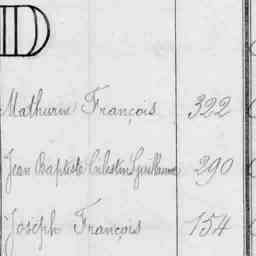 D
Mathurin François 322
Jean Baptiste Célestin Guillaume 290
Joseph François 154